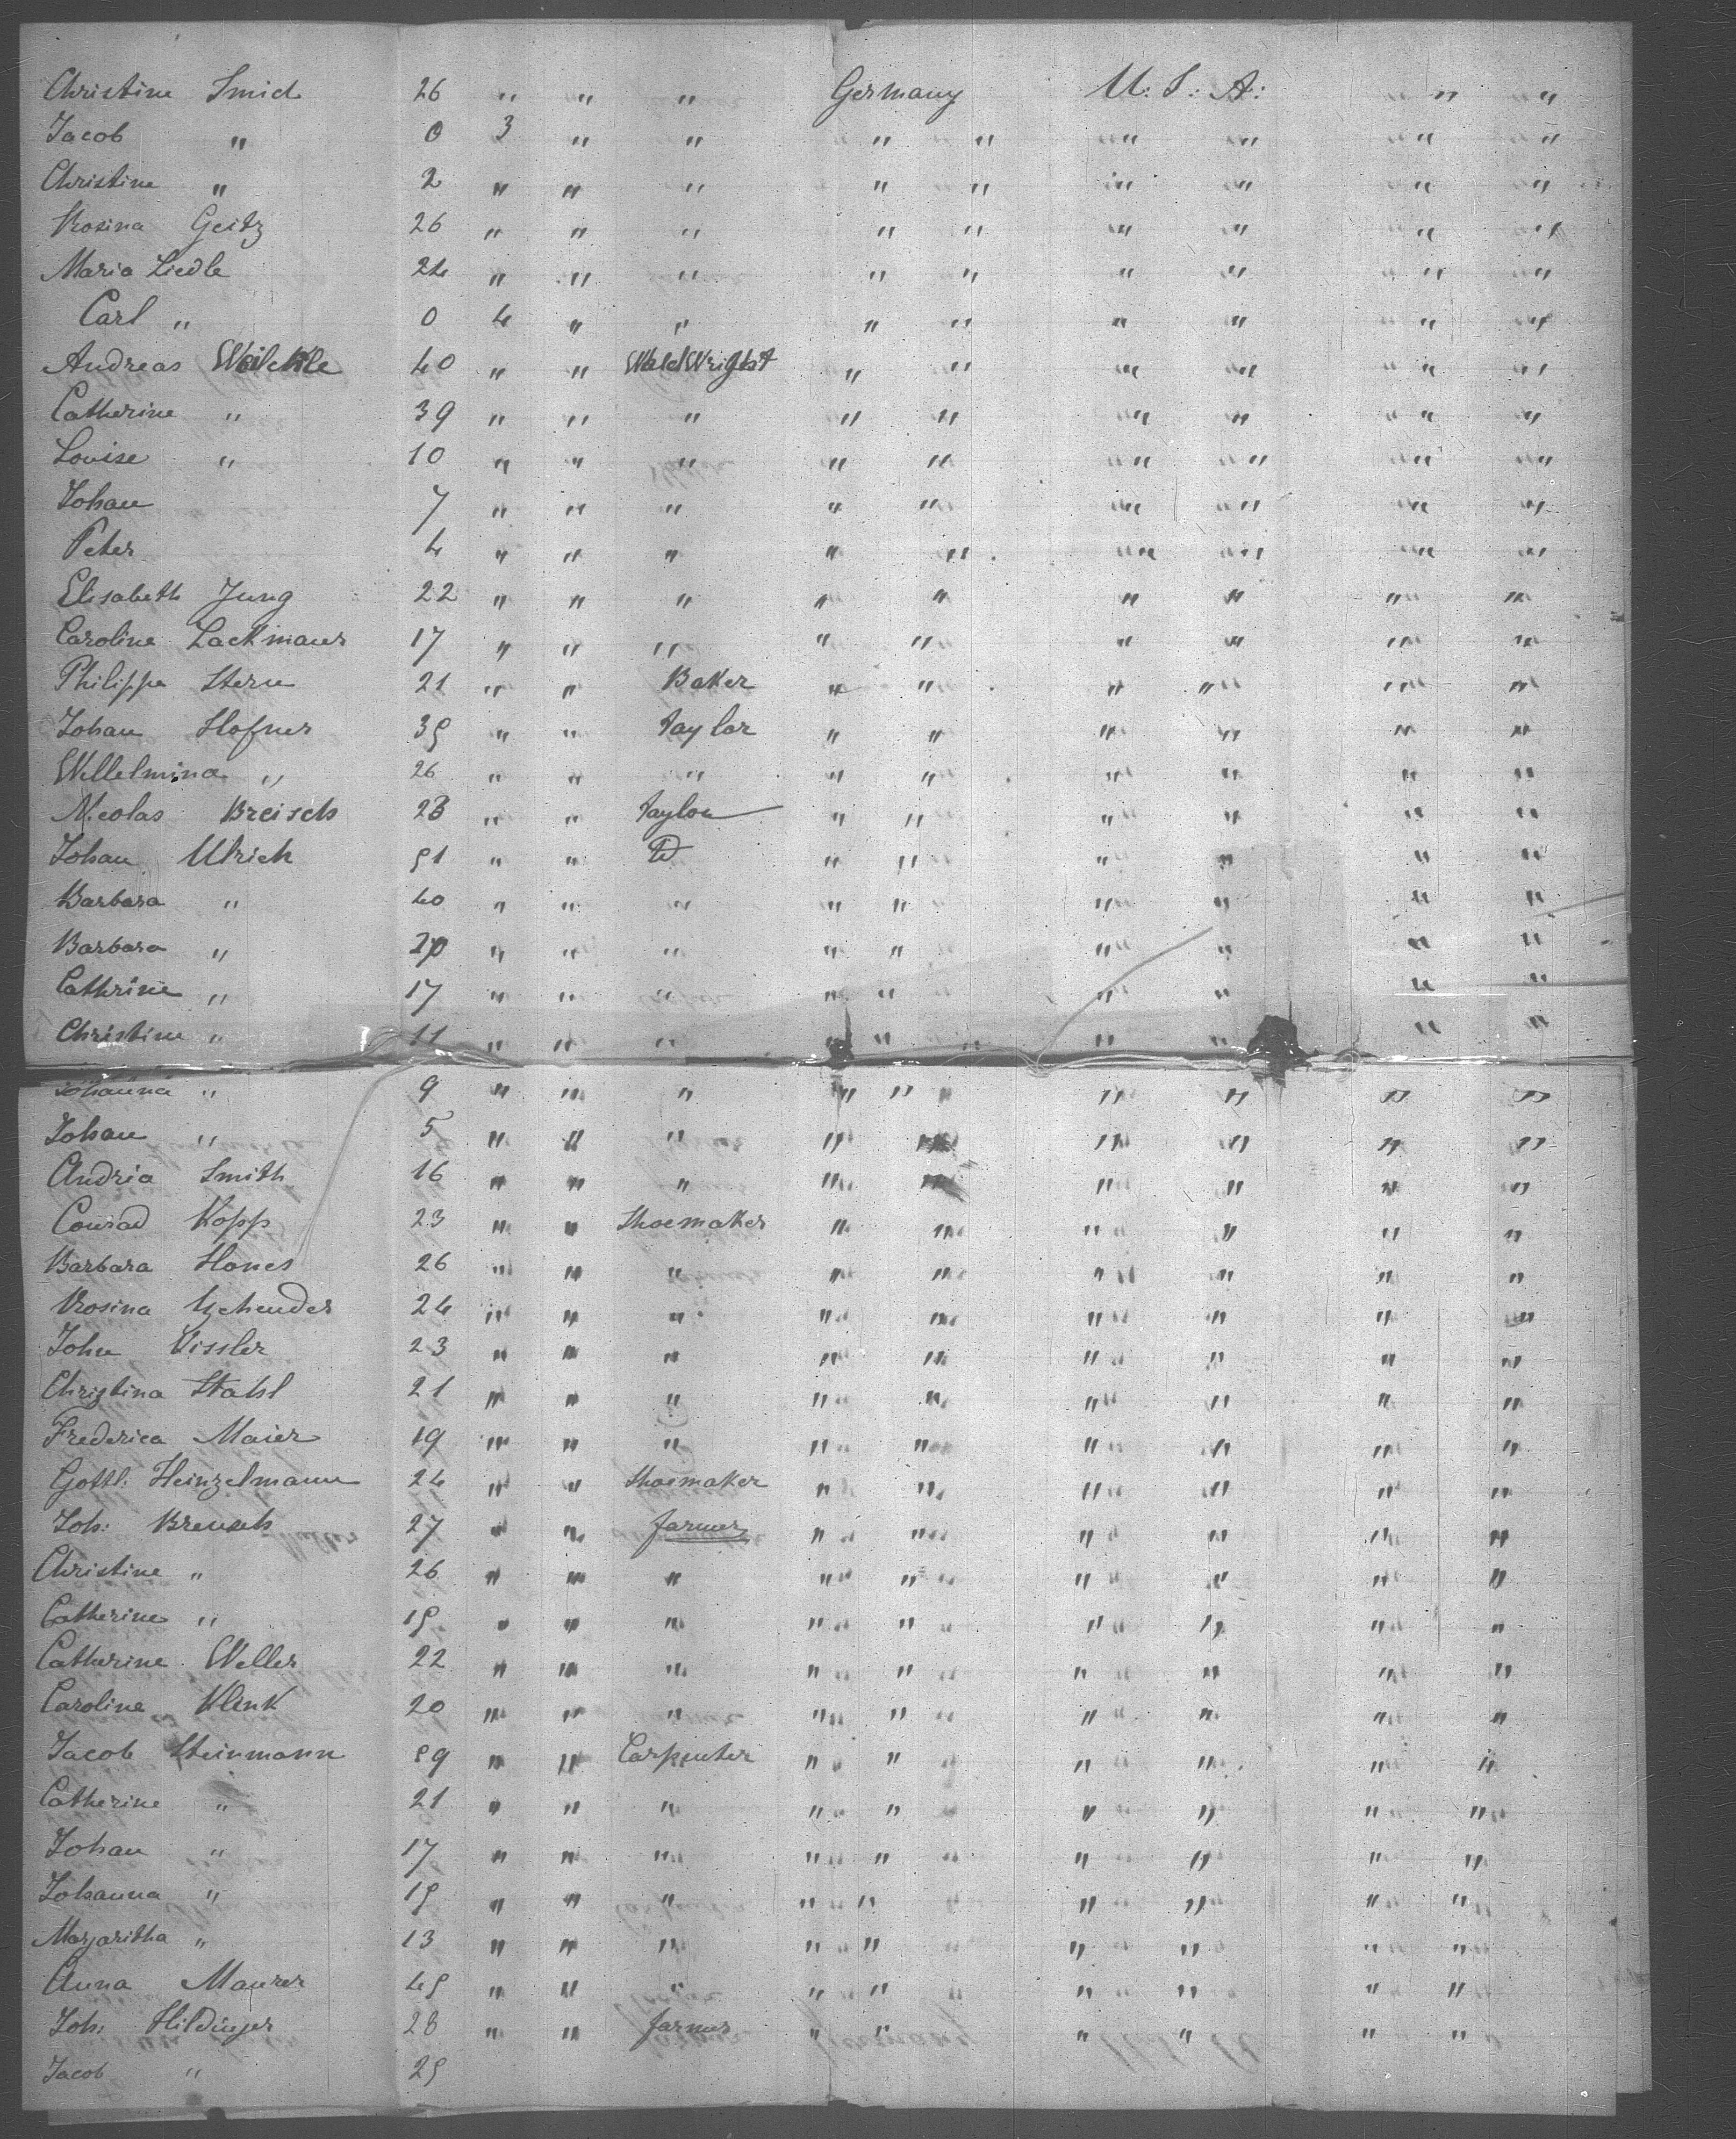 Christine Smid 26 " " " Germany U. S. A. " "
Jacob " 0 3 " " " " " " " "
Christine " 2 " " " " " " " " "
Rosina Geitz 26 " " " " " " " " "
Maria Liedle 24 " " " " " " " " "
Carl " 0 4 " " " " " " " "
Andreas 40 " " " " " " "
Catherine " 39 " " " " " " " " "
Louise " 10 " " " " " " " " "
Johan 7 " " " " " " " " "
Peter 4 " " " " " " " " "
Elisabeth Jung 22 " " " " " " " " "
Caroline Lackmaier 17 " " " " " " " " "
Philippe Stern 21 " " Baker " " " " " "
Johan Hofner 35 " " Taylor " " " " " "
Willelmina " 26 " " " " " " " " "
Nicolas Breisch 28 " " Taylor " " " " " "
Johan Ulrich 51 " " " " " " " "
Barbara " 40 " " " " " " " " "
Barbara " 20 " " " " " " " " "
Cathrine " 17 " " " " " " " " "
Christine " 11 " " " " " " " " "
Johanna " 9 " " " " " " " " "
Johan " 5 " " " " " " " " "
Andria Smith 16 " " " " " " " " "
Conrad Kopp 23 " " Shoemaker " " " " " "
Barbara Hones 26 " " " " " " " " "
Rosina 24 " " " " " " " " "
John Vissler 23 " " " " " " " " "
Christina Stahl 21 " " " " " " " " "
Frederica Maier 19 " " " " " " " " "
Gottl: Heinzelmann 24 " " Shoemaker " " " " " "
Joh: Breusch 27 " " farmer " " " " " "
Christine " 26 " " " " " " " " "
Catherine " 15 " " " " " " " " "
Catherine Weller 22 " " " " " " " " "
Caroline Klenk 20 " " " " " " " " "
Jacob Steinmann 59 " " Carpenter " " " " " "
Catherine " 21 " " " " " " " " "
Johan " 17 " " " " " " " " "
Johanna " 15 " " " " " " " " "
Margaritha " 13 " " " " " " " " "
Anna Maurer 45 " " " " " " " " "
Joh: Hildinger 28 " " farmer " " " " " "
Jacob " 25